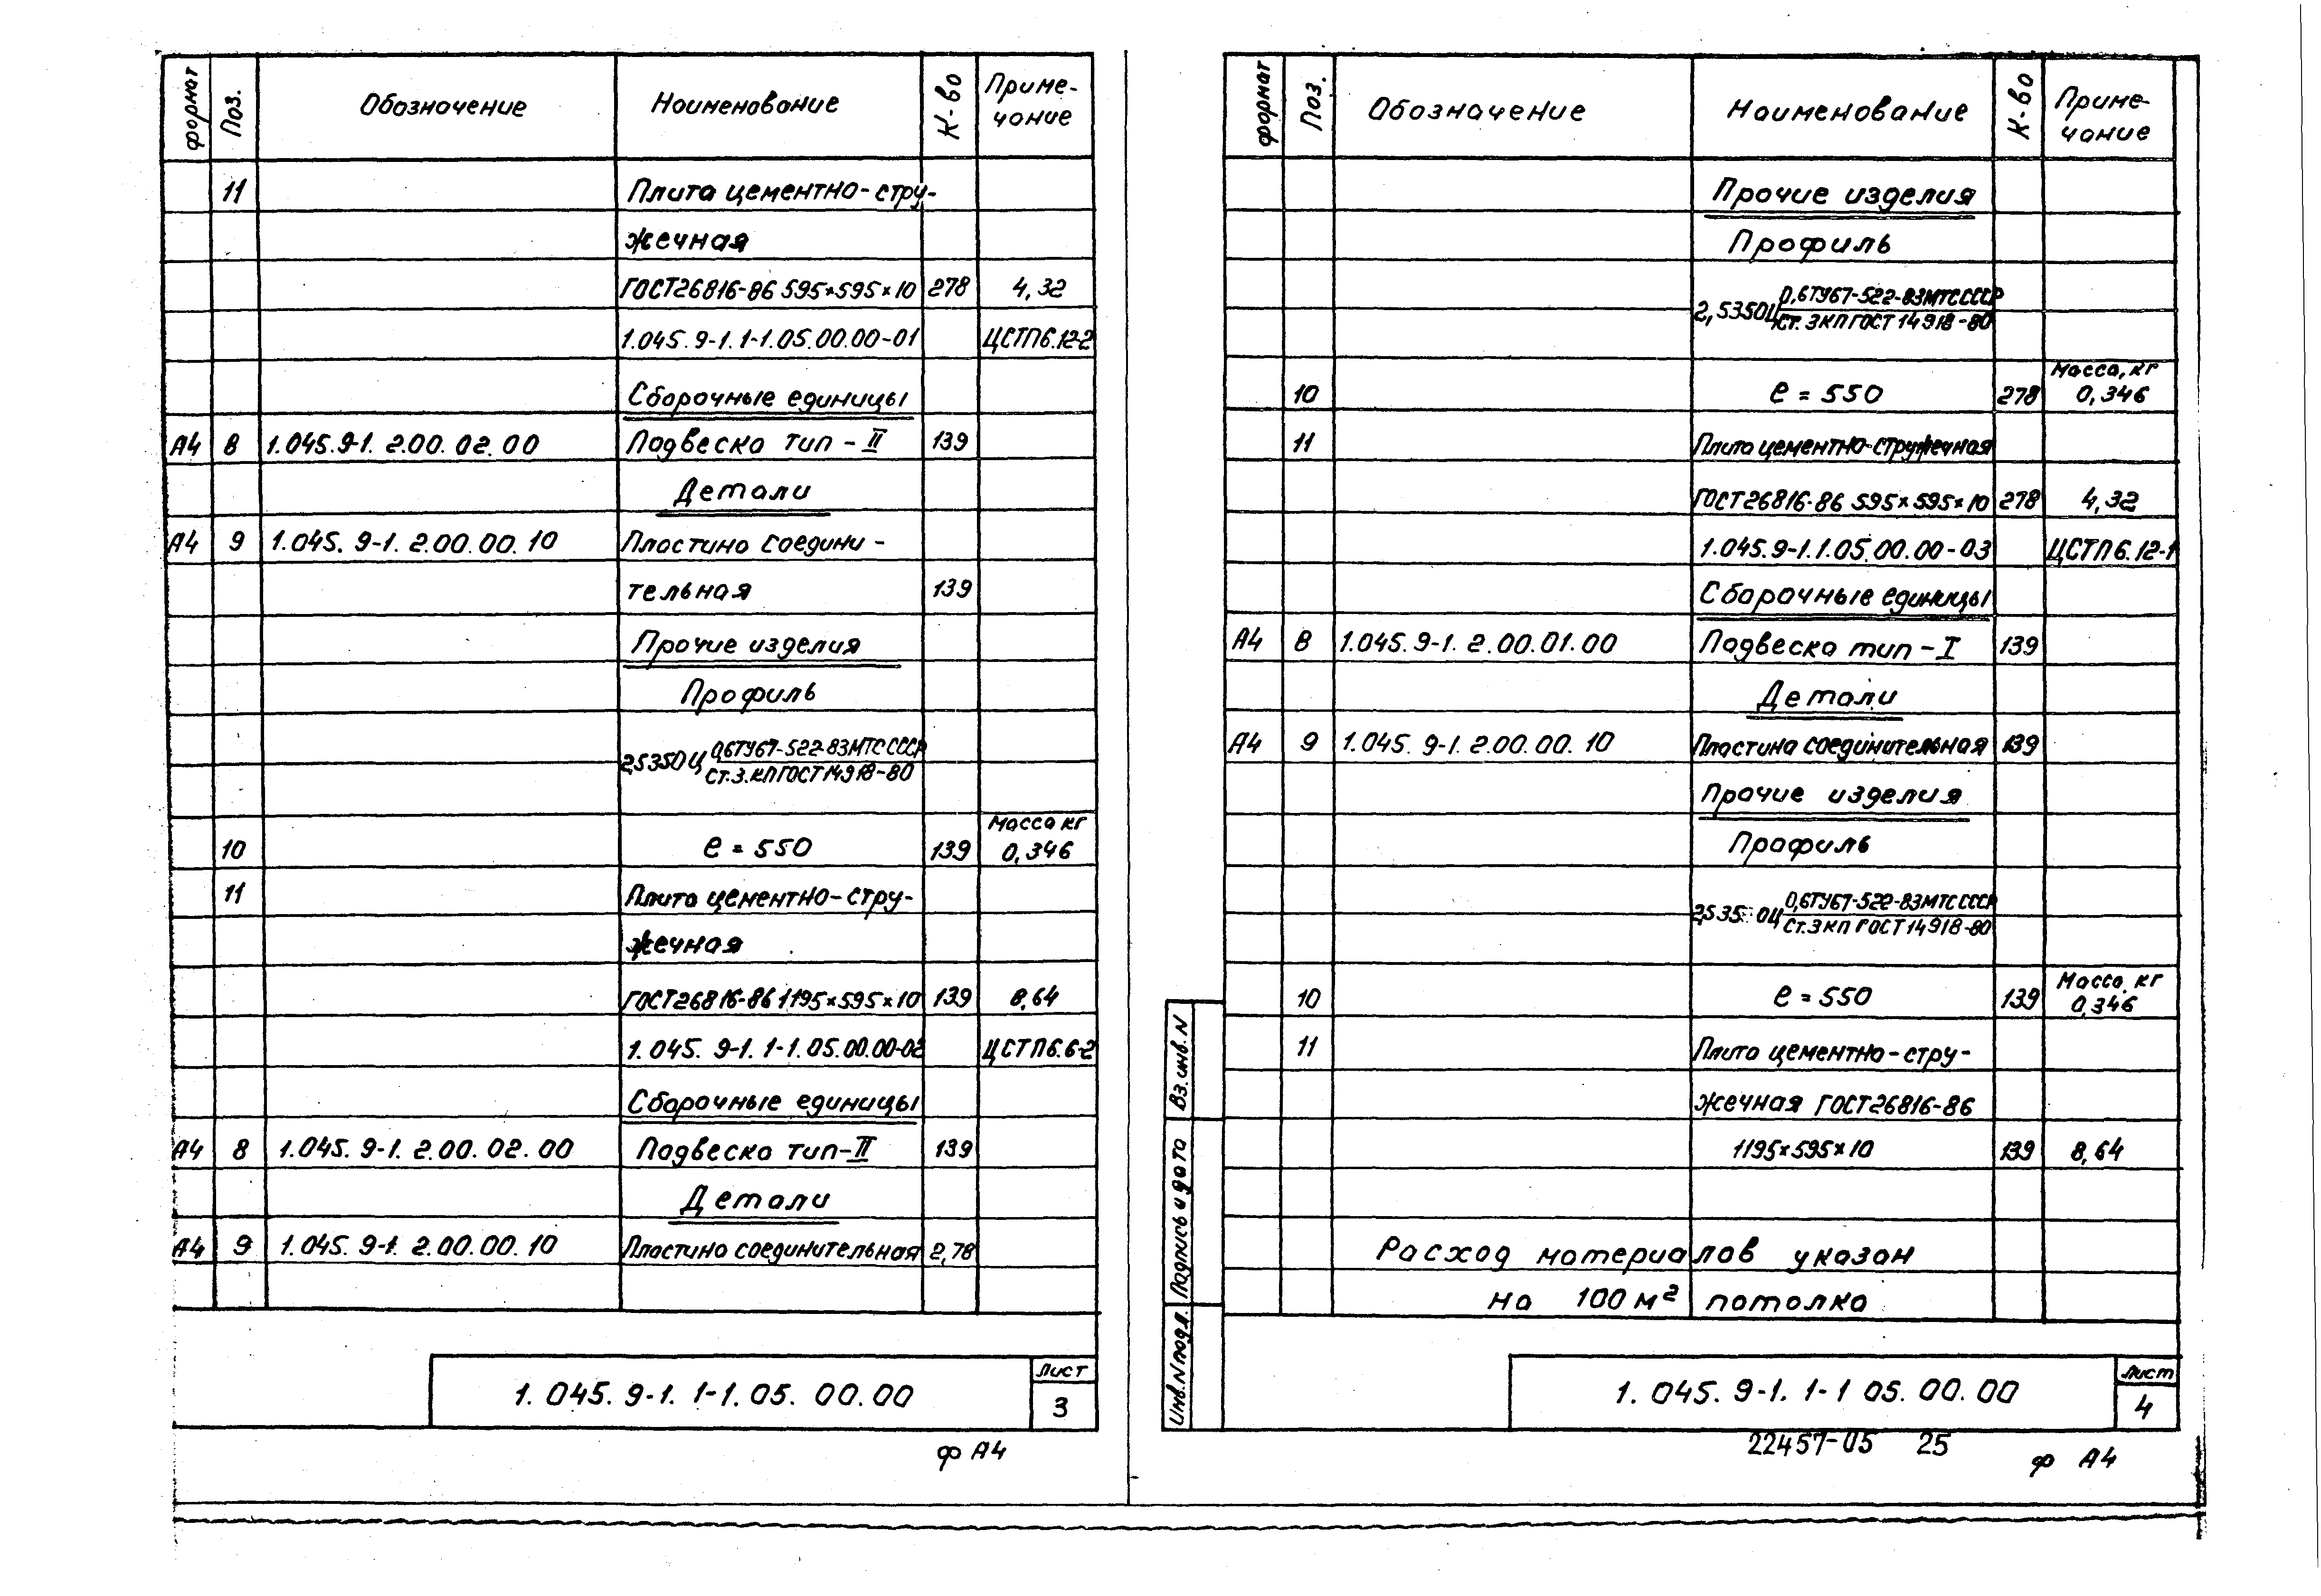 формат Поз. Обозначение Наименование К-во Приме-
чание
11 Плита цементно-стру-
жечная
ГОСТ26816-86 595×595×10 278 4,32
1.045.9-1.1-1.05.00.00-01 ЦСТП6.12-2
Сборочные единицы
А4 8 1.045.9-1. 2.00.02.00 Подвеска тип-II 139
Детали
А4 9 1.045.9-1. 2.00.00.10 Пластина соедини-
тельная 139
Прочие изделия
Профиль
0,6ТУ67-522-83МТС СССР
2,53504
Ст.3.КП ГОСТ14918-80
Масса кг
10 е=550 139 0,346
11 Плита цементно-стру-
жечная
ГОСТ26816-86 1195×595×10 139 8,64
1.045.9-1.1-1.05.00.00-02 ЦСТП6.6-2
Сборочные единицы
А4 8 1.045.9-1. 2.00.02.00 Подвеска тип-II 139
Детали
А4 9 1.045.9-1. 2.00.00.10 Пластина соединительная 2,78
1.045.9-1.1-1.05.00.00
Лист
3
ф А4
формат Поз. Обозначение Наименование К-во Приме-
чание
Прочие изделия
Профиль
0,6ТУ67-522-83МТС СССР
2,5350Ц
Ст.3КП ГОСТ 14918-80
Масса, кг
10 е=550 278 0,346
11 Плита цементно-стружечная
ГОСТ26816-86 595×595×10 278 4,32
1.045.9-1.1.05.00.00-03 ЦСТП6.12-1
Сборочные единицы
А4 8 1.045.9-1. 2.00.01.00 Подвеска тип-I 139
Детали
А4 9 1.045.9-1. 2.00.00.10 Пластина соединительная 139
Прочие изделия
Профиль
0,6ТУ67-522-83МТС СССР
Ст.3КП ГОСТ14918-80
Масса, кг
10 е=550 139 0,346
11 Плита цементно-стру-
жечная ГОСТ26816-86
1195×595×10 139 8,64
Расход материалов указан
на 100 м² потолка
Вз. инв. N
Подпись и дата
Инв. N подл.
1.045.9-1.1-1 05.00.00
Лист
4
22457-05 25
ф А4